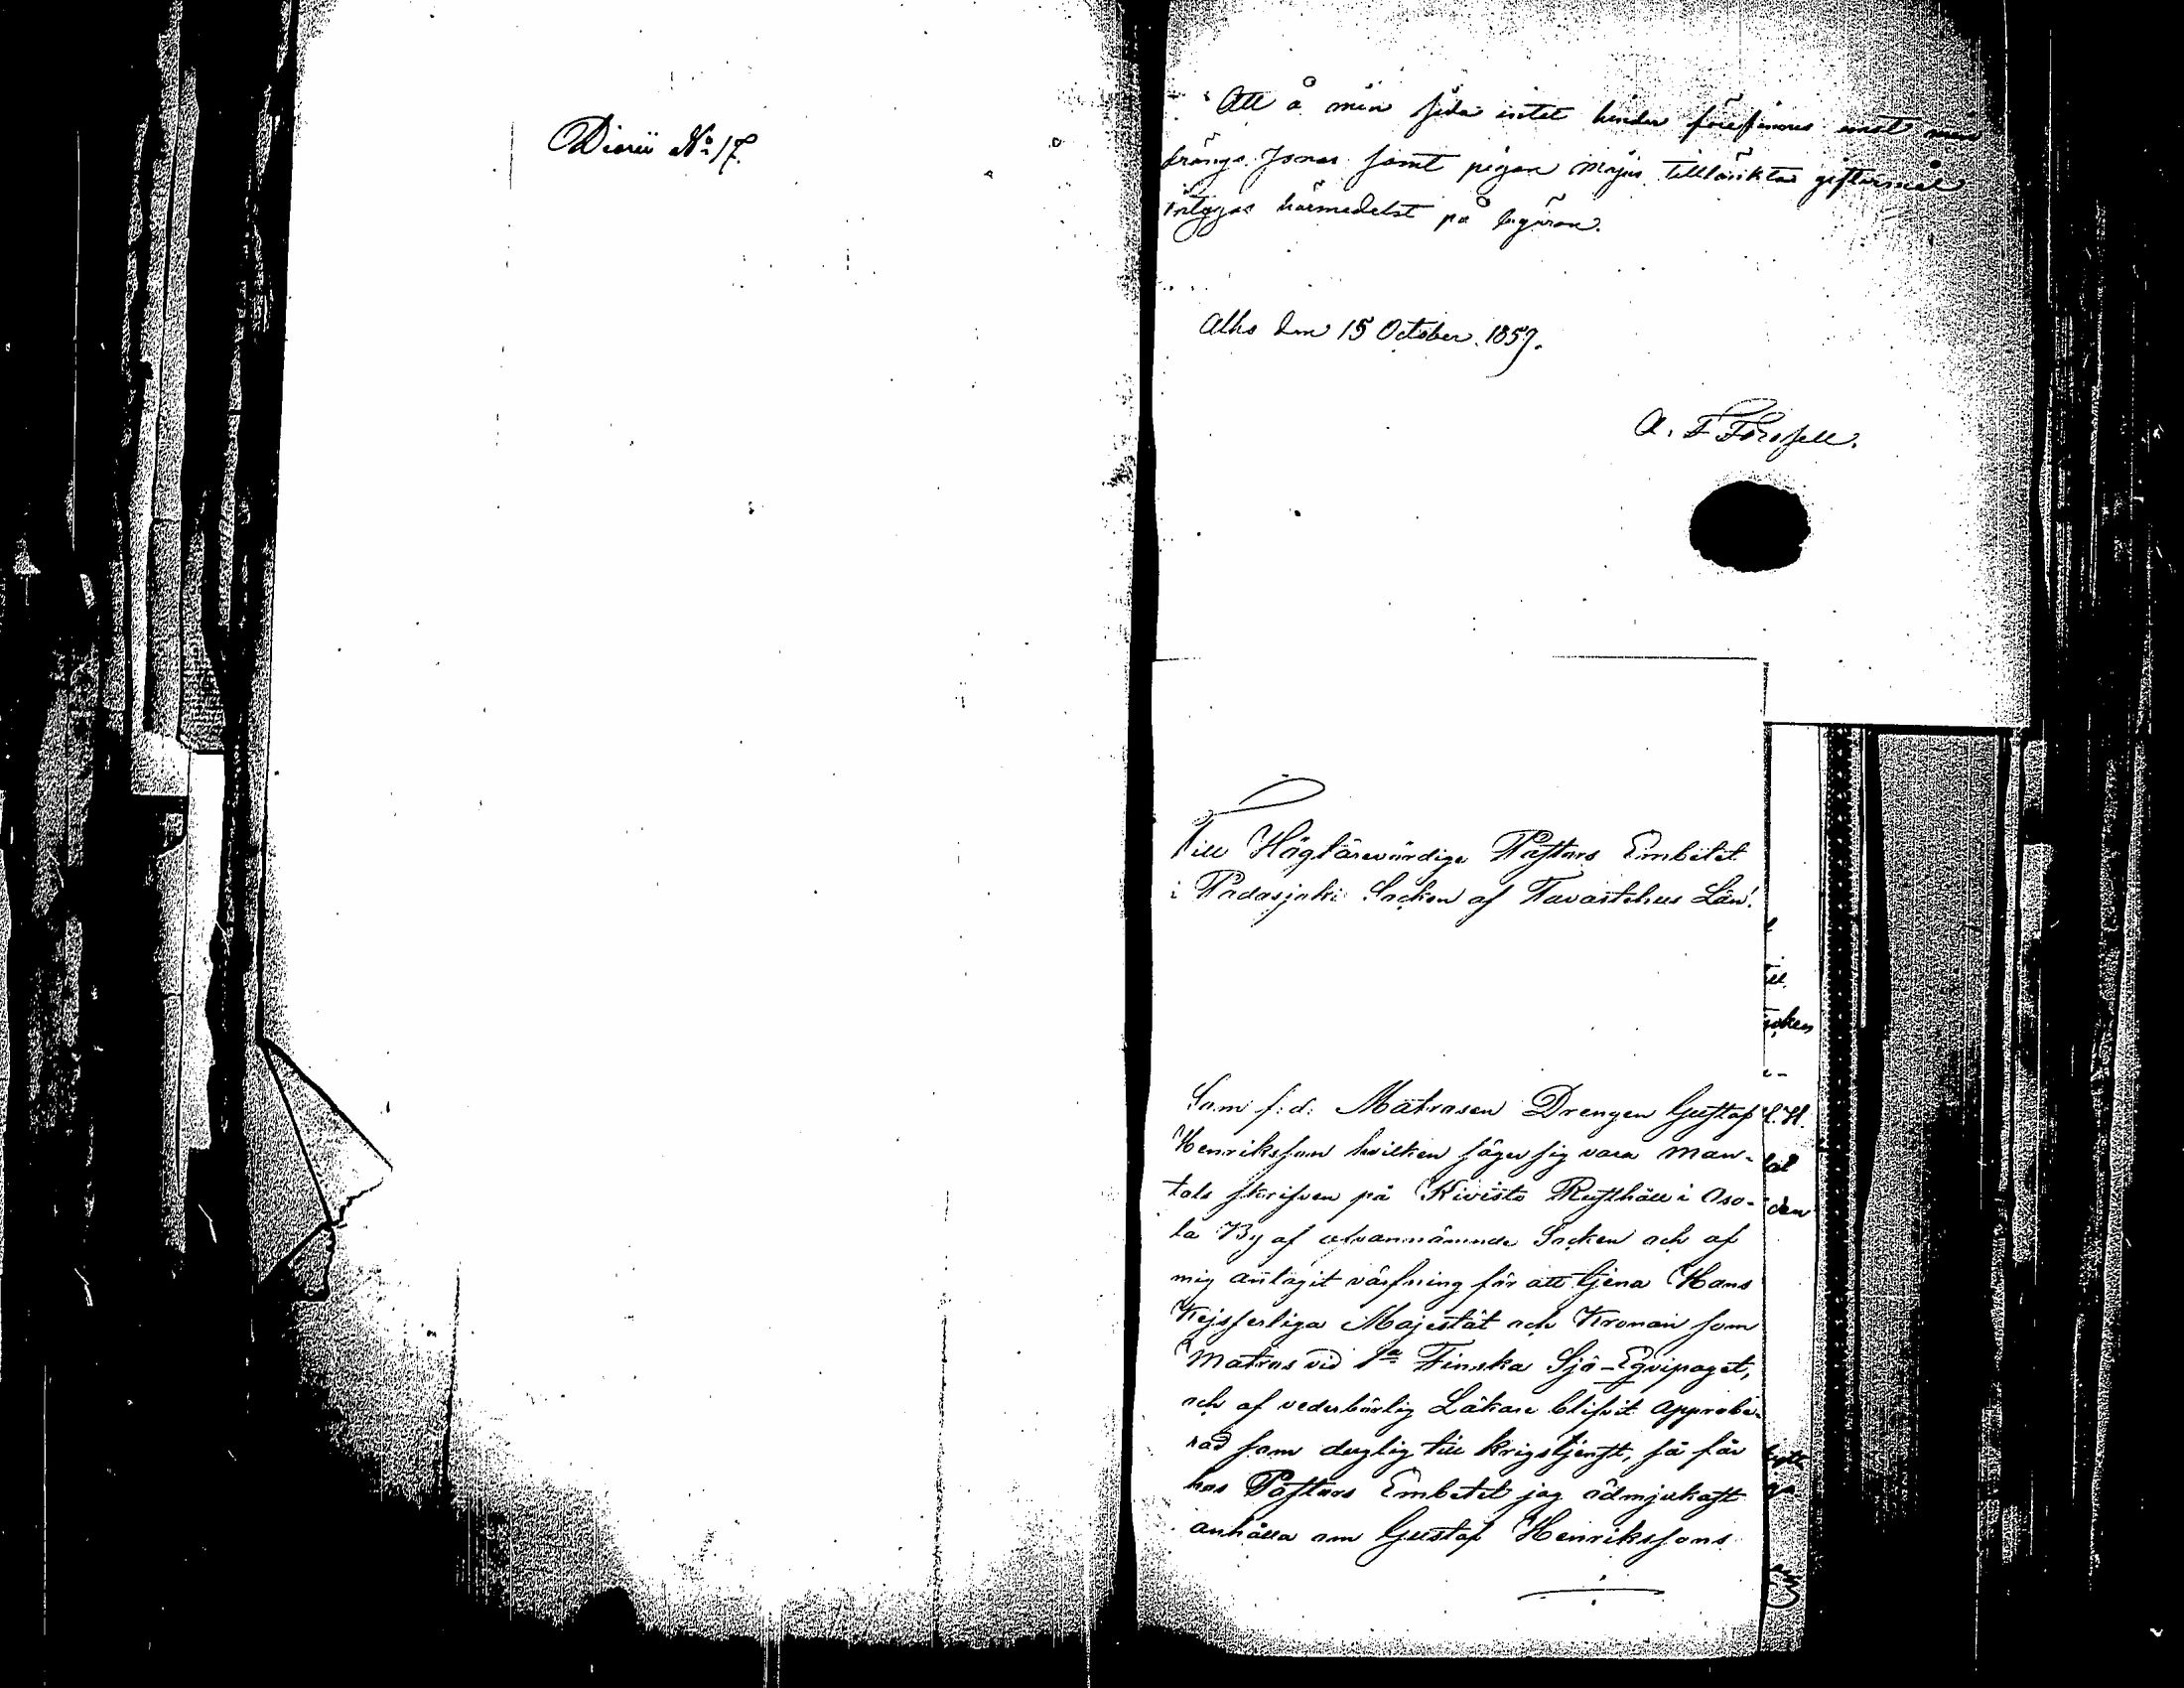 Diarii No 17.
Att å min sida intet hinder förefinnes emot min
drängs Jonas samt pigan Majas tilltänktas giftermål
intygas härmedelst på begäran.
Alho den 15 October 1857.
A. F. Forssell.
Till Höglärevördige Pastors Embetet
i Padasjoki Socken af Tavastehus Län!
Som f: d: Matrosen Drengen Gustaf
Henriksson hvilken säger sig vara man-
tals skrifven på Kivistö Rusthåll i Aso-
la By af ofvannämnde Socken och af
mig antagit värfning för att tjena Hans
Kejserliga Majestät och Kronan som
Matros vid 1a Finska Sjö-Eqvipaget,
och af vederbörlig Läkare blifvit approbe-
rad som duglig till krigstjenst, så får
hos Pastors Embetet jag ödmjukast
anhålla om Gustaf Henrikssons
til
socken
den